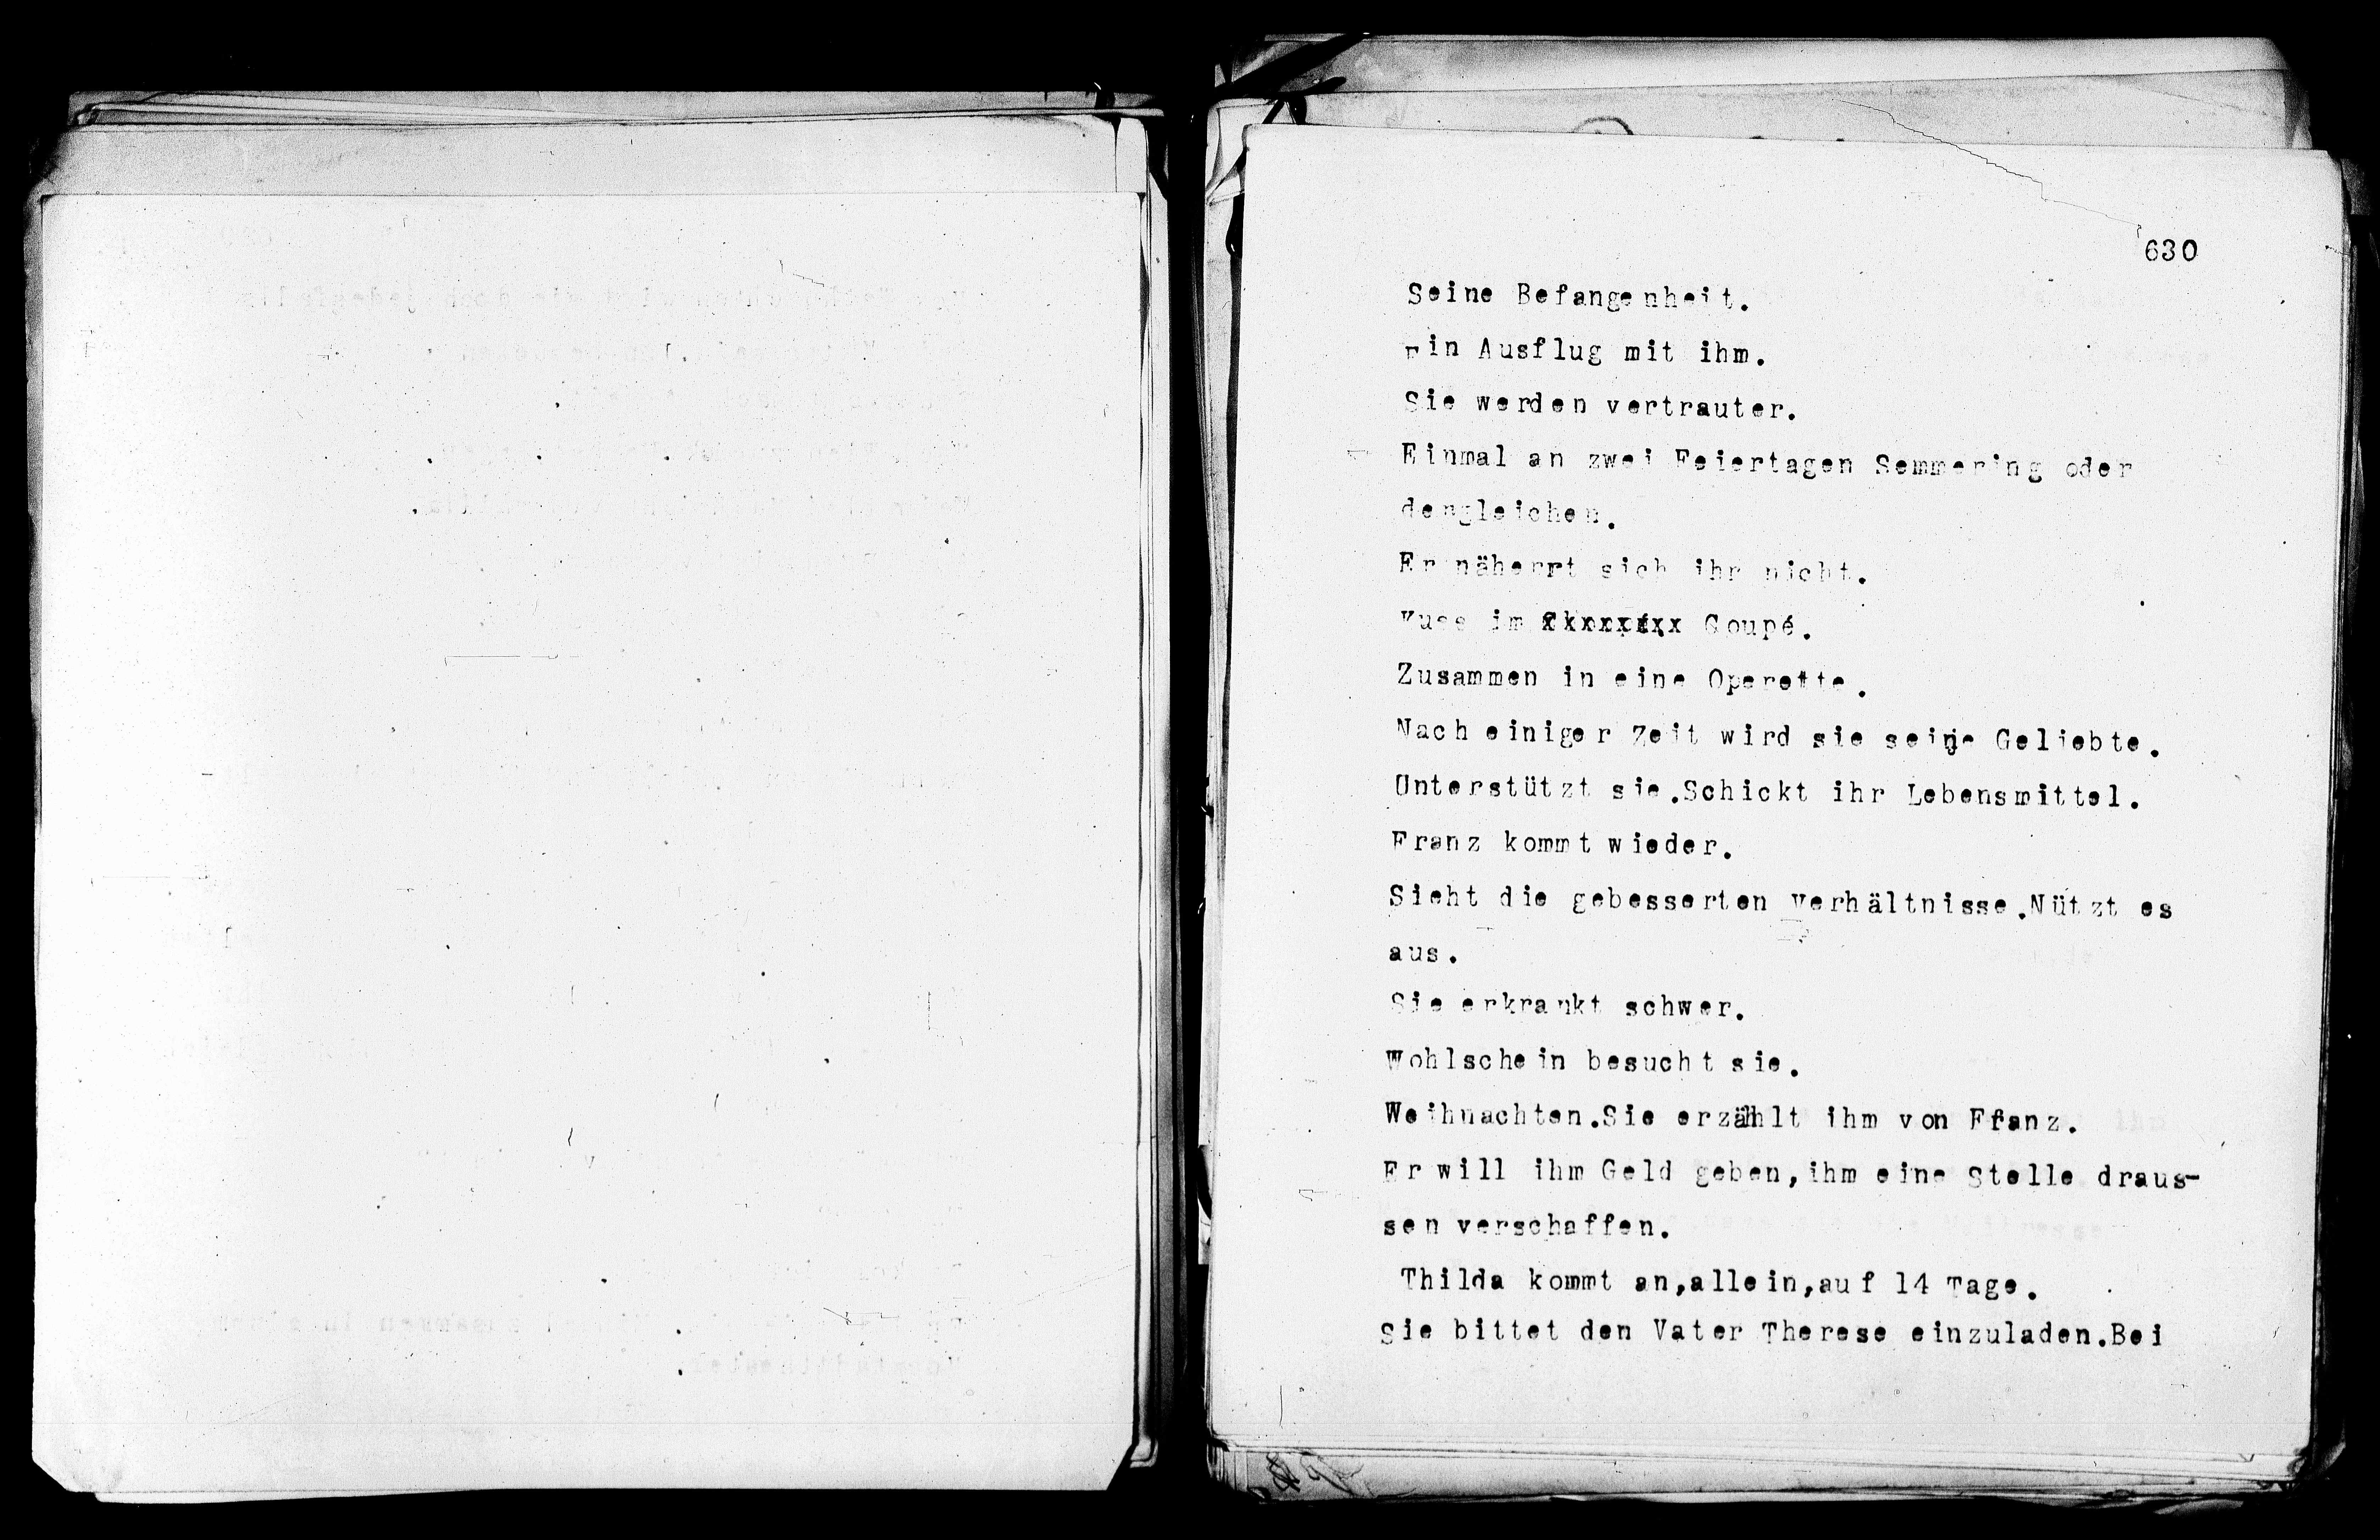 630
Seine Befangenheit.
Ein Ausflug mit ihm.
Sie werden vertrauter.
Einmal an zwei Feiertagen Semmering oder
dengleichen.
Er näherrt sich ihr nicht.
Kuss im Coupé.
Zusammen in eine Operette.
Nach einiger Zeit wird sie seine Geliebte.
Unterstützt sie.Schickt ihr Lebensmittel.
Franz kommt wieder.
Sieht die gebesserten Verhältnisse.Nützt es
aus.
Sie erkrankt schwer.
Wohlschein besucht sie.
Weihnachten.Sie erzählt ihm von Franz.
Er will ihm Geld geben,ihm eine Stelle draus-
sen verschaffen.
Thilda kommt an,allein,auf 14 Tage.
Sie bittet den Vater Therese einzuladen.Bei